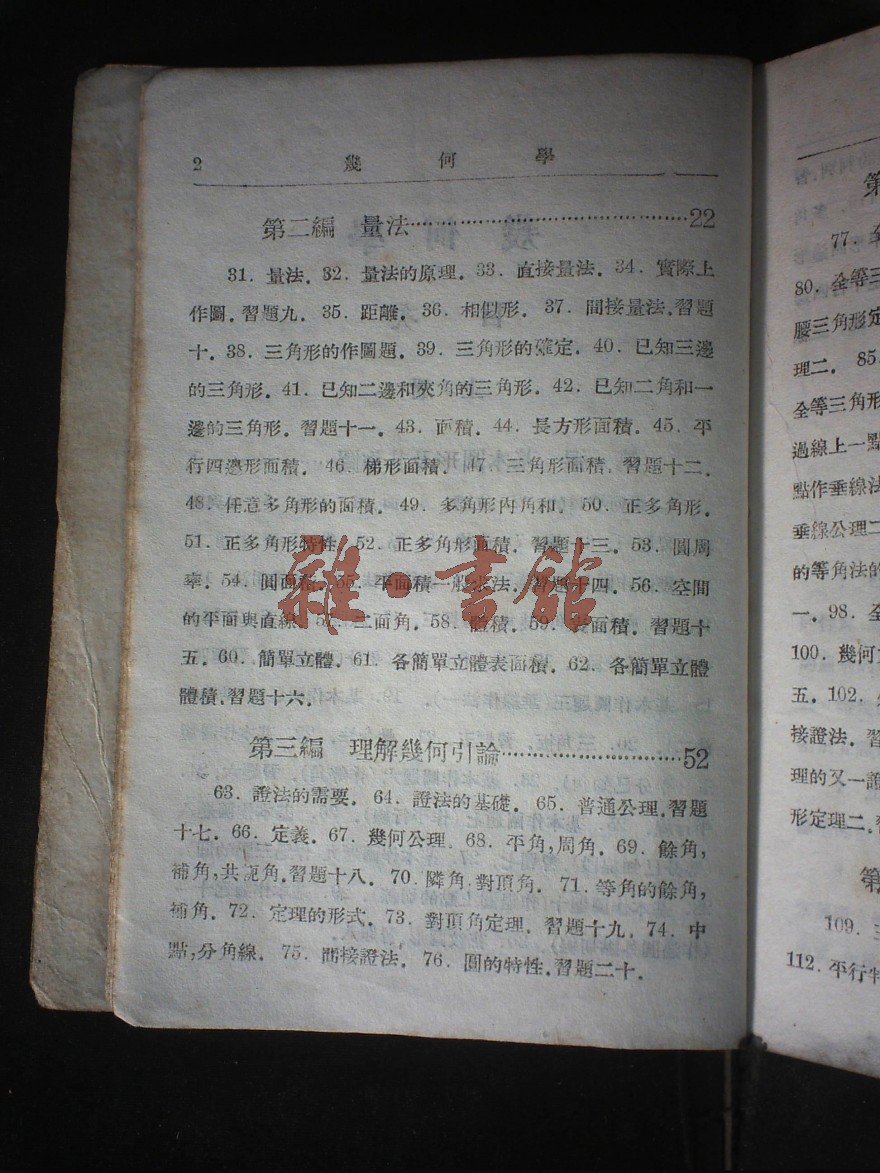 2 幾何學
第二編 量法……………………………………22
31. 量法. 32. 量法的原理. 33. 直接量法. 34. 實際上
作圖. 習題九. 35. 距離. 36. 相似形. 37. 間接量法. 習題
十. 38. 三角形的作圖題. 39. 三角形的確定. 40. 已知三邊
的三角形. 41. 已知二邊和夾角的三角形. 42. 已知二角和一
邊的三角形. 習題十一. 43. 面積. 44. 長方形面積. 45. 平
行四邊形面積. 46. 梯形面積. 47. 三角形面積. 習題十二.
48. 任意多角形的面積. 49. 多角形內角和. 50. 正多角形.
51. 正多角形特性. 52. 正多角形面積. 習題十三. 53. 圓周
率. 54. 圓面積. 55. 平面積一般求法. 習題十四. 56. 空間
的平面與直線. 57. 二面角. 58. 體積. 59. 表面積. 習題十
五. 60. 簡單立體. 61. 各簡單立體表面積. 62. 各簡單立體
體積. 習題十六.
第三編 理解幾何引論………………………52
63. 證法的需要. 64. 證法的基礎. 65. 普通公理. 習題
十七. 66. 定義. 67. 幾何公理. 68. 平角, 周角. 69. 餘角,
補角, 共軛角. 習題十八. 70. 隣角. 對頂角. 71. 等角的餘角,
補角. 72. 定理的形式. 73. 對頂角定理. 習題十九. 74. 中
點, 分角線. 75. 間接證法. 76. 圓的特性. 習題二十.
雜·書館
第
77. 全
80. 全等三
腰三角形定
理二. 85.
全等三角形
過線上一點
點作垂線法
垂線公理二
的等角法的
一. 98. 全
100. 幾何
五. 102.
接證法. 習
理的又一證
形定理二.
第
109.
112. 平行